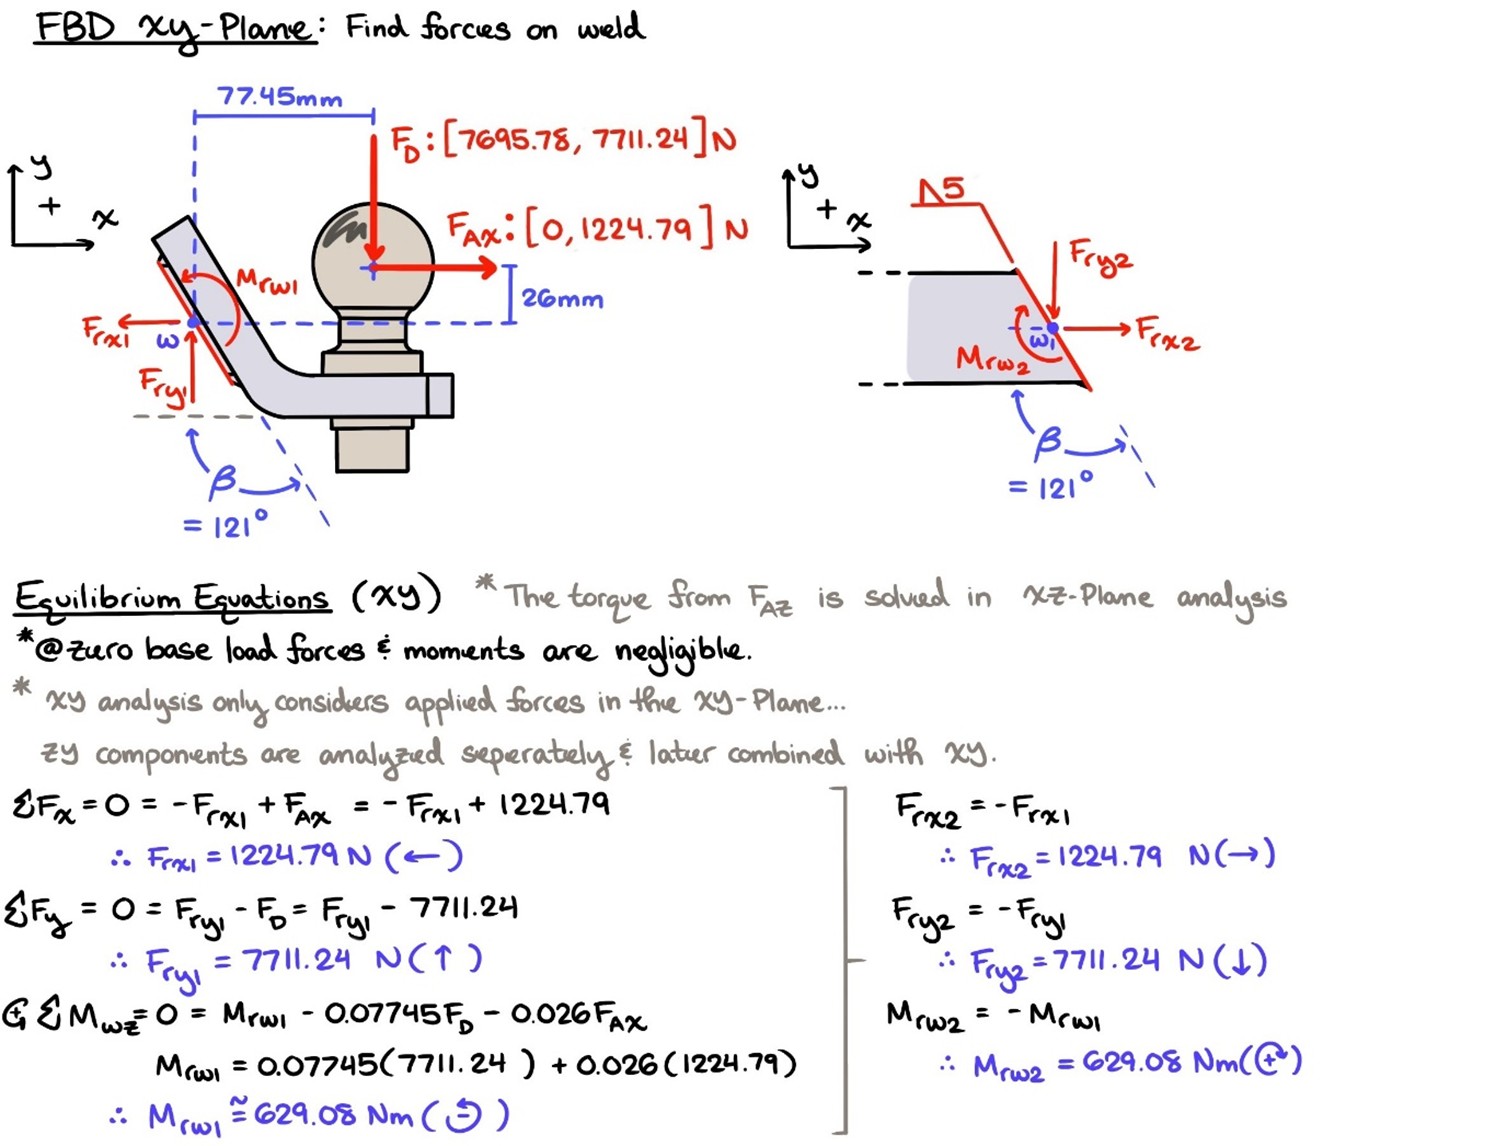 FBD xy-Plane: Find forces on weld
77.45mm
F_D: [7695.78, 7711.24] N
y
+ x
F_AX: [0, 1224.79] N
M_rw1
26mm
F_rx1
w
F_ry1
β
= 121°
y
+ x
5
F_ry2
F_rx2
w1
M_rw2
β
= 121°
Equilibrium Equations (xy) * The torque from F_AZ is solved in xz-Plane analysis
* @zero base load forces & moments are negligible.
* xy analysis only considers applied forces in the xy-Plane...
zy components are analyzed seperately & later combined with xy.
ΣFx = 0 = -F_rx1 + F_AX = -F_rx1 + 1224.79
∴ F_rx1 = 1224.79 N (←)
ΣFy = 0 = F_ry1 - F_D = F_ry1 - 7711.24
∴ F_ry1 = 7711.24 N (↑)
↺+ ΣM_wz = 0 = M_rw1 - 0.07745F_D - 0.026F_AX
M_rw1 = 0.07745(7711.24) + 0.026(1224.79)
∴ M_rw1 ≅ 629.08 Nm (↺)
F_rx2 = -F_rx1
∴ F_rx2 = 1224.79 N (→)
F_ry2 = -F_ry1
∴ F_ry2 = 7711.24 N (↓)
M_rw2 = -M_rw1
∴ M_rw2 = 629.08 Nm (↻+)